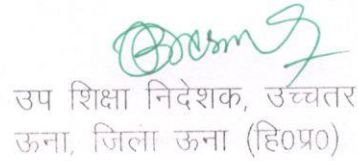 उप शिक्षा निदेशक, उच्चतर
ऊना, जिला ऊना (हि0प्र0)